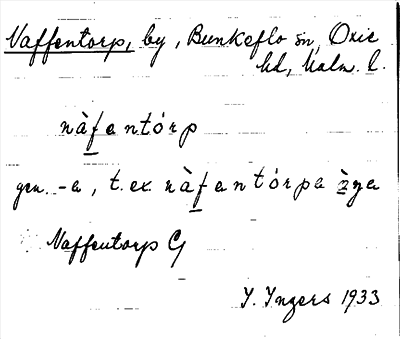 Naffentorp, by, Bunkeflo sn, Oxie
hd, Malm. l.
nàfentórp
gen. -a, t.ex. nàfentórpa
Naffentorp G
I. Ingers 1933